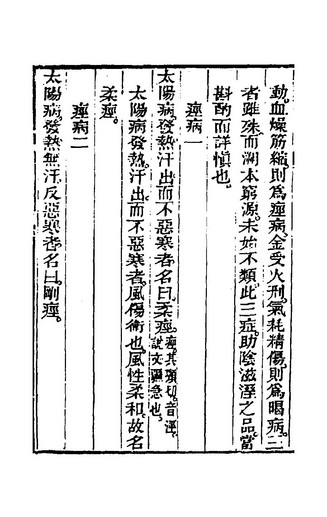 動。血燥筋縮。則為痙病。金受火刑。氣耗精傷。則為暍病。三
者雖殊。而溯本窮源。未始不類。此三症。助陰滋溼之品。當
斟酌而詳慎也。
痙病一
太陽病。發熱。汗出。而不惡寒者。名曰柔痙。痙其頸切音逕。說文彊急也。
太陽病。發熱。汗出。而不惡寒者。風傷衛也。風性柔和。故名
柔痙。
痙病二
太陽病。發熱無汗。反惡寒者。名曰剛痙。